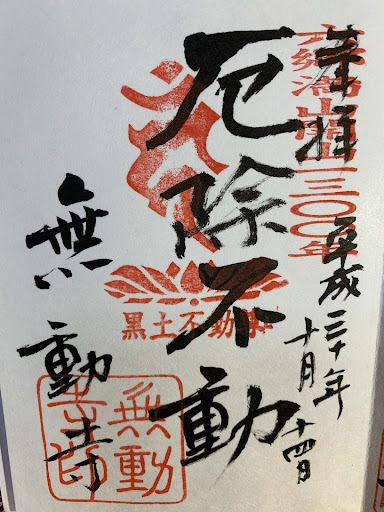 奉拝
六郷満山開山一三〇〇年
平成三十年
十月十四日
厄除不動
黒土不動尊
無動寺
無動
寺印